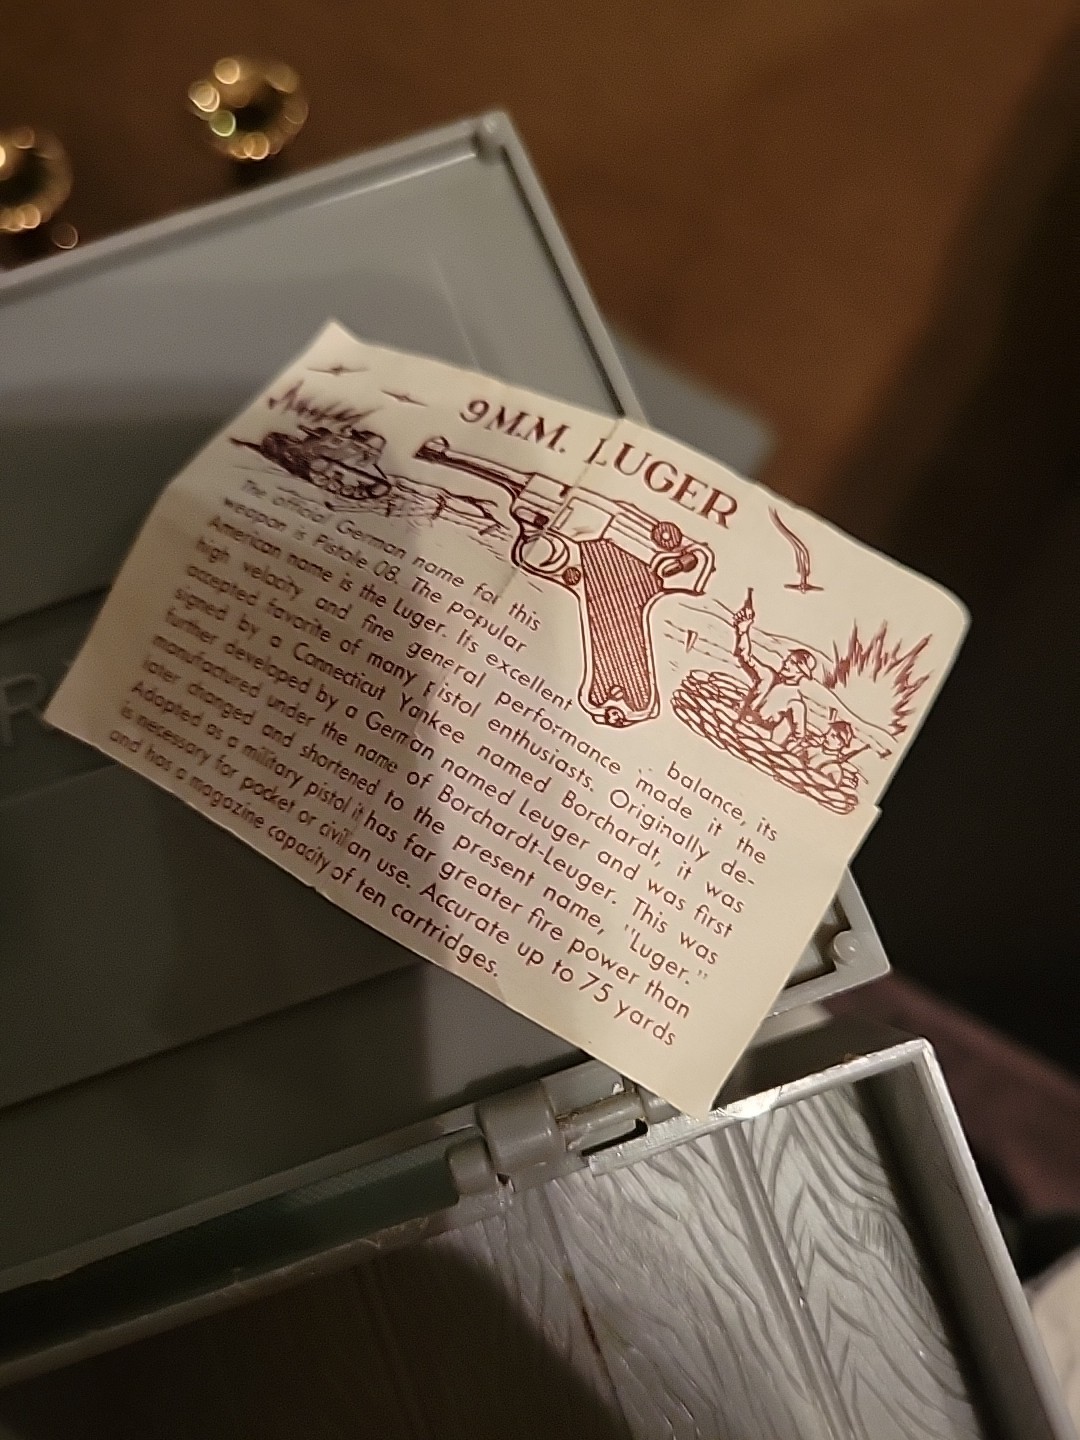 9M.M. LUGER
The official German name for this
weapon is Pistole 08. The popular
American name is the Luger. Its excellent balance, its
high velocity and fine general performance made it the
accepted favorite of many pistol enthusiasts. Originally de-
signed by a Connecticut Yankee named Borchardt, it was
further developed by a German named Leuger and was first
manufactured under the name of Borchardt-Leuger. This was
later changed and shortened to the present name, "Luger."
Adopted as a military pistol it has far greater fire power than
is necessary for pocket or civilian use. Accurate up to 75 yards
and has a magazine capacity of ten cartridges.